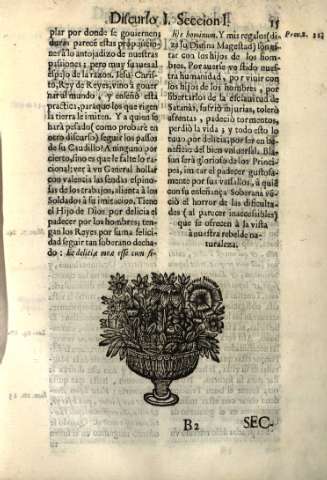 Discurso I. Seccion I. 15
plar por donde se gouiernen:
duras parecē estas proposicio-
nes à lo antojadizo de nuestras
passiones; pero muy suaves al
espejo de la razon. Iesu Chris-
to, Rey de Reyes, vino à gouer
nar el mundo, y enseñò esta
practica, para que los que rigen
la tierra le imiten. Y a quien se
harà pesado (como probarè en
otro discurso) seguir los passos
de su Caudillo? A ninguno por
cierto, sino es que le falte lo ra-
cional; ver à vn General hollar
con valencia las sendas espino-
sas de los trabajos, alienta à los
Soldados à su imitacion. Tiene
el Hijo de Dios por delicia el
padecer por los hombres; ten-
gan los Reyes por suma felici-
dad seguir tan soberano decha-
do: & deliciæ meæ esse cum fi-
lijs hominum. Y mis regalos (di-
ze su Divina Magestad) son es-
tar con los hijos de los hom-
bres. Por averse vestido nuestra
humanidad, por vivir con
los hijos de los hombres, por
libertarlos de la esclauitud de
Satanàs, sufriò injurias, tolerò
afrentas, padeciò tormentos,
perdiò la vida; y todo esto lo
tuuo por delicia, por ser en be-
neficio del bien vniversal. Bla-
son serà glorioso de los Princi-
pes, imitar el padecer gustosa-
mente por sus vassallos, à quiē
en su enseñança Soberana vē-
ciò el horror de las dificulta-
des (al parecer inaccesibles)
que se ofrecen à la vista
à nuestra rebelde na-
turaleza.
Prov. 8.
B2 SEC-